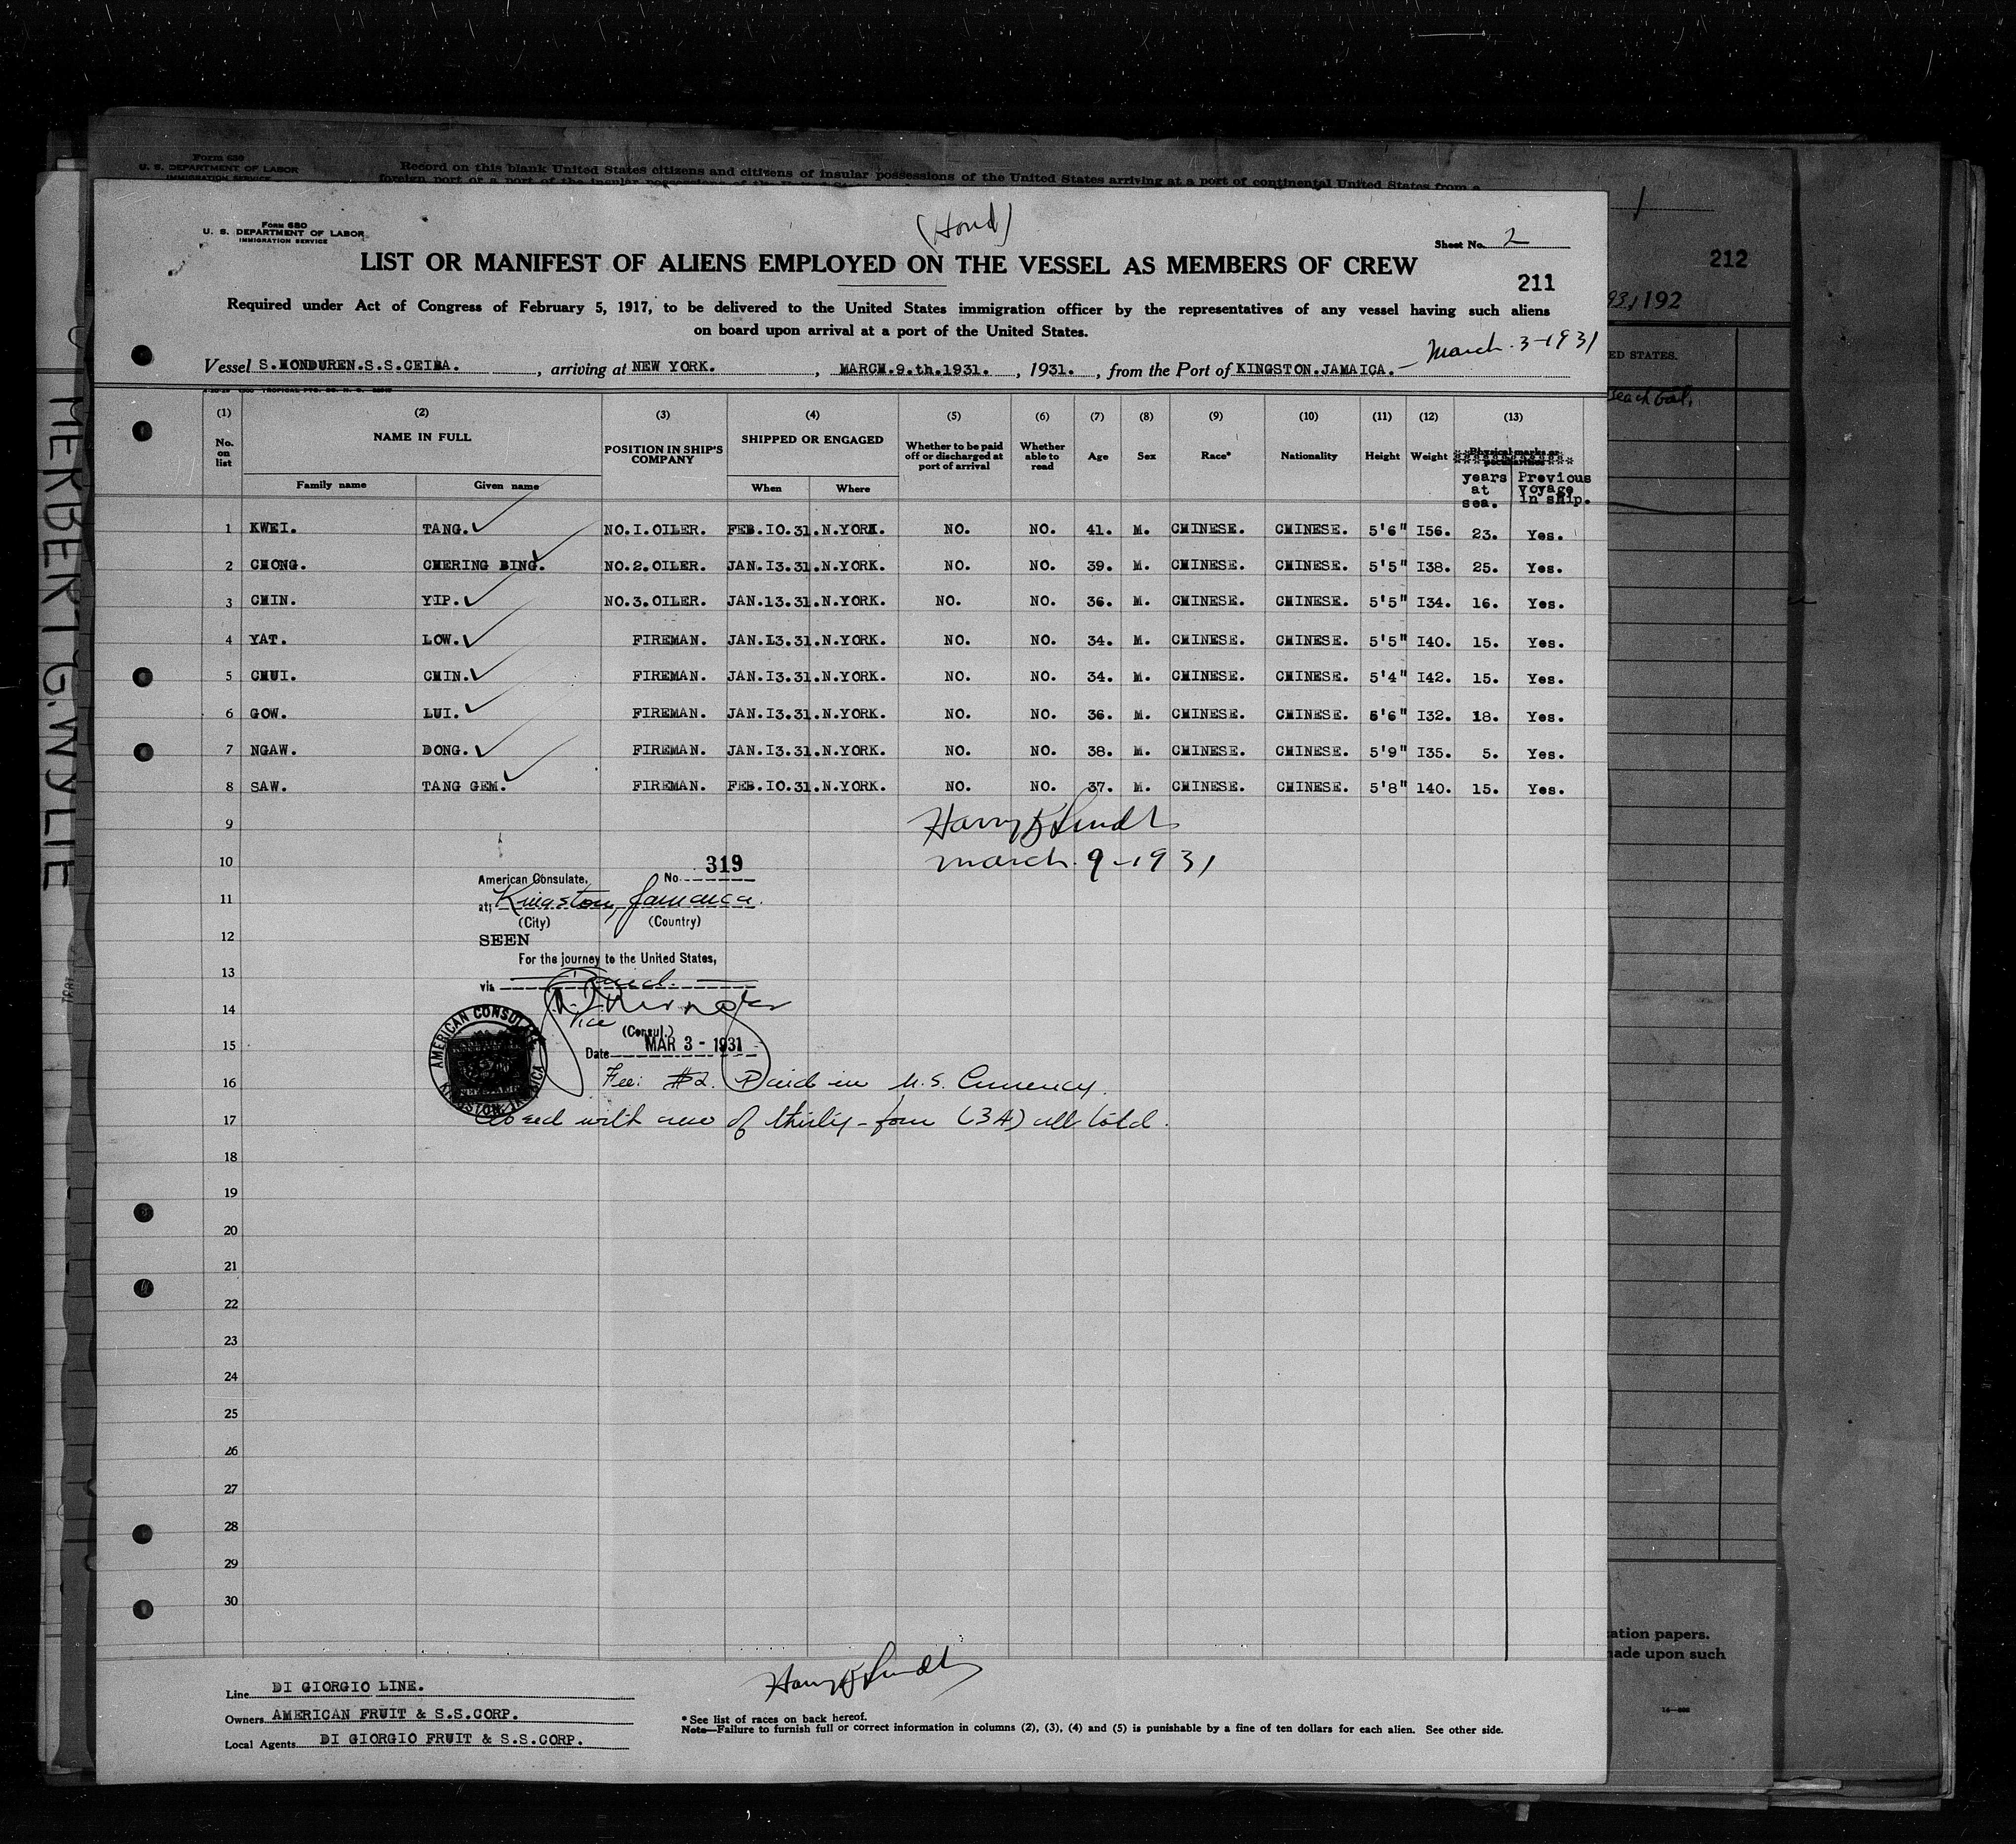 Form 630
U. S. DEPARTMENT OF LABOR
IMMIGRATION SERVICE
Record on this blank United States citizens and citizens of insular possessions of the United States arriving at a port of continental United States from a
(Hond)
Form 680
U. S. DEPARTMENT OF LABOR
IMMIGRATION SERVICE
Sheet No. 2
LIST OR MANIFEST OF ALIENS EMPLOYED ON THE VESSEL AS MEMBERS OF CREW
211
212
Required under Act of Congress of February 5, 1917, to be delivered to the United States immigration officer by the representatives of any vessel having such aliens
on board upon arrival at a port of the United States.
March. 3-1931
Vessel S.HONDUREN.S.S.CEIBA. , arriving at NEW YORK. , MARCH.9.th.1931. , 1931. , from the Port of KINGSTON.JAMAICA.
931, 192
ED STATES.
(1) (2) (3) (4) (5) (6) (7) (8) (9) (10) (11) (12) (13)
No. on list NAME IN FULL POSITION IN SHIP'S COMPANY SHIPPED OR ENGAGED Whether to be paid off or discharged at port of arrival Whether able to read Age Sex Race* Nationality Height Weight Physical marks or peculiarities
Family name Given name When Where years at sea. Previous voyage in ship.
1 KWEI. TANG. NO.I.OILER. FEB.IO.31.N.YORK. NO. NO. 41. M. CHINESE. CHINESE. 5'6" I56. 23. Yes.
2 CHONG. CHERING BING. NO.2.OILER. JAN.I3.31.N.YORK. NO. NO. 39. M. CHINESE. CHINESE. 5'5" I38. 25. Yes.
3 CHIN. YIP. NO.3.OILER. JAN.13.31.N.YORK. NO. NO. 36. M. CHINESE. CHINESE. 5'5" I34. 16. Yes.
4 YAT. LOW. FIREMAN. JAN.I3.31.N.YORK. NO. NO. 34. M. CHINESE. CHINESE. 5'5" I40. 15. Yes.
5 CHUI. CHIN. FIREMAN. JAN.I3.31.N.YORK. NO. NO. 34. M. CHINESE. CHINESE. 5'4" I42. 15. Yes.
6 GOW. LUI. FIREMAN. JAN.I3.31.N.YORK. NO. NO. 36. M. CHINESE. CHINESE. 5'6" I32. 18. Yes.
7 NGAW. DONG. FIREMAN. JAN.I3.31.N.YORK. NO. NO. 38. M. CHINESE. CHINESE. 5'9" I35. 5. Yes.
8 SAW. TANG GEM. FIREMAN. FEB.IO.31.N.YORK. NO. NO. 37. M. CHINESE. CHINESE. 5'8" 140. 15. Yes.
9
10 March. 9-1931
319
American Consulate, No.
11 at Kingston, Jamaica.
(City) (Country)
12
SEEN
For the journey to the United States,
13
via
14
Vice (Consul.)
15
Date MAR 3 - 1931
AMERICAN CONSULATE KINGSTON, JAMAICA
16 Fee: $2. Paid in U.S. Currency.
17 Closed with crew of thirty-four (34) all told.
18
19
20
21
22
23
24
25
26
27
28
29
30
Line DI GIORGIO LINE.
Owners AMERICAN FRUIT & S.S.CORP.
Local Agents DI GIORGIO FRUIT & S.S.CORP.
* See list of races on back hereof.
Note—Failure to furnish full or correct information in columns (2), (3), (4) and (5) is punishable by a fine of ten dollars for each alien. See other side.
ation papers.
ade upon such
HERBERT G. WYLIE